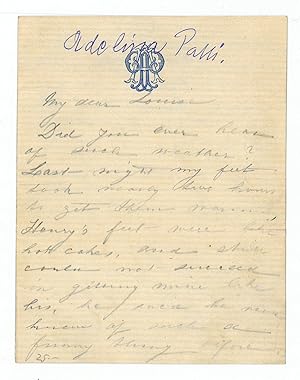 Adelina Patti.
My dear Louise
Did you ever hear
of such weather?
Last night my feet
took nearly two hours
to get them warm!
Henry's feet were like
hot cakes, and still
could not succeed
in getting mine like
his, he said he never
knew of such a
funny thing before
25-